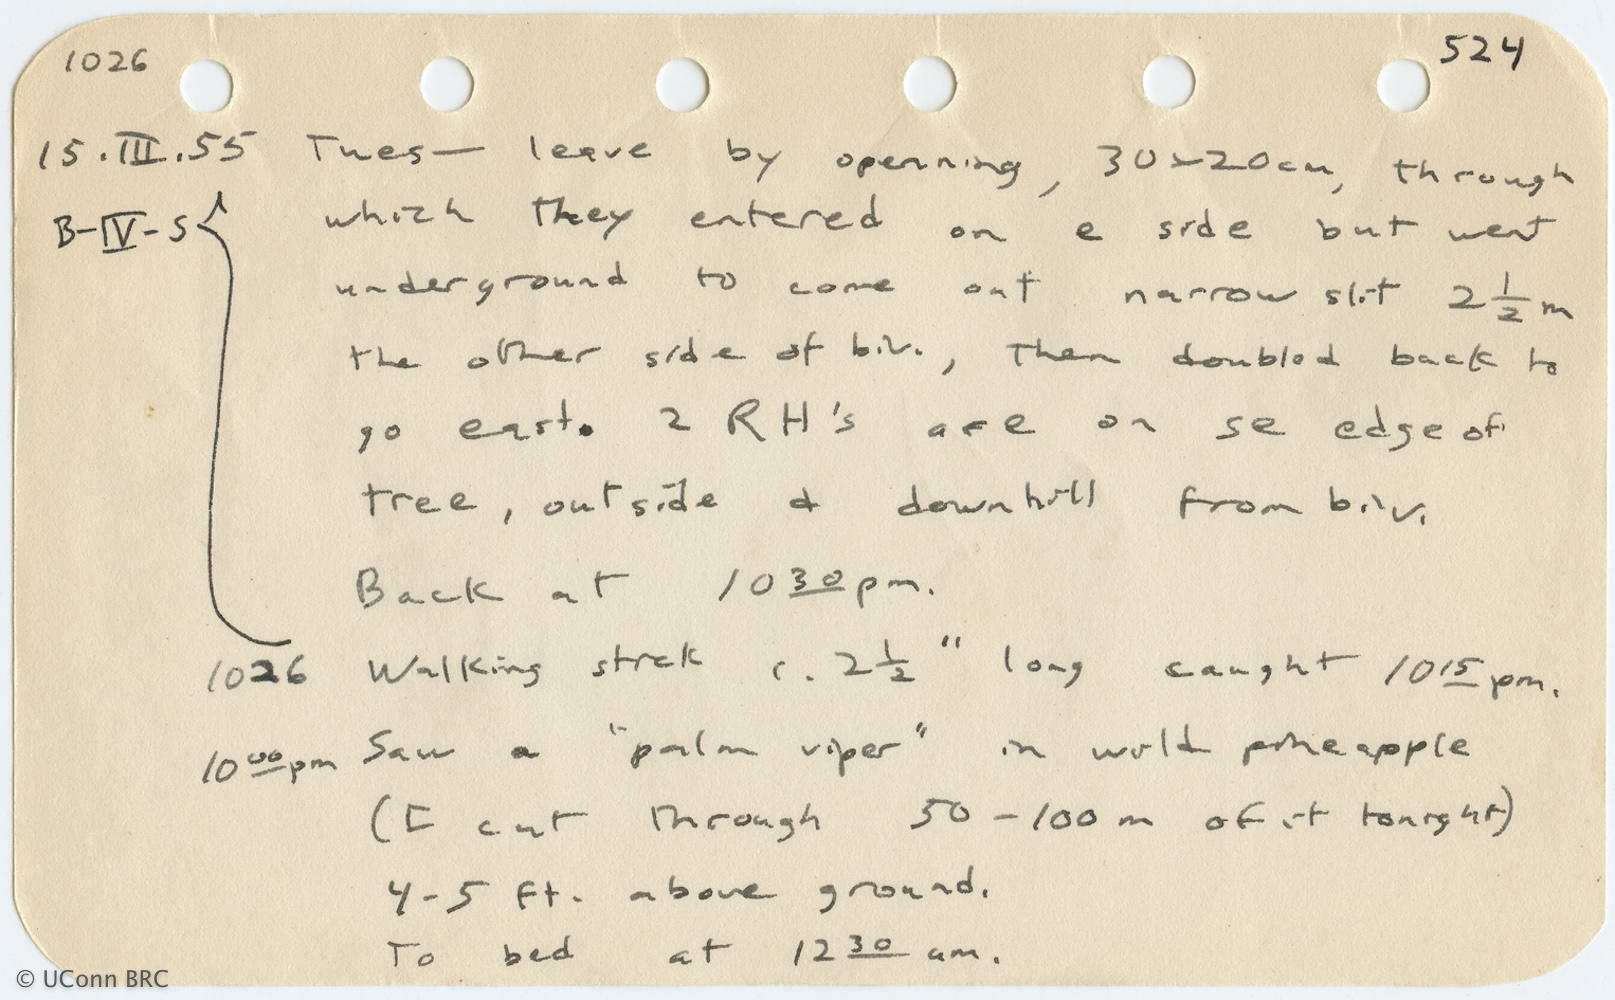 1026 524
15.III.55 Tues— leave by openning, 30×20cm, through
B-IV-S which they entered on e side but went
underground to come out narrow slit 2 1/2 m
the other side of biv., then doubled back to
go east. 2 RH's are on se edge of
tree, outside & downhill from biv.
Back at 10 30 pm.
1026 Walking stick c. 2 1/2" long caught 10 15 pm.
10 00 pm Saw a "palm viper" in wild pineapple
(I cut through 50-100 m of it tonight)
4-5 ft. above ground.
To bed at 12 30 am.
© UConn BRC